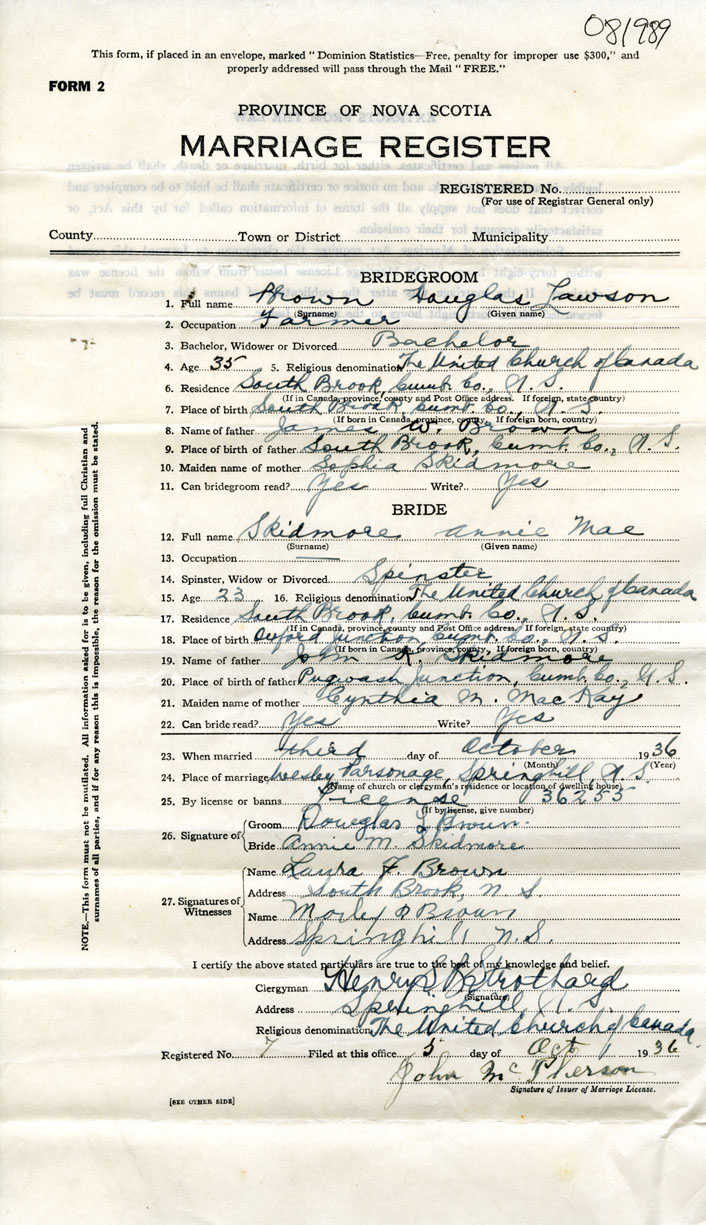 081989
This form, if placed in an envelope, marked "Dominion Statistics—Free, penalty for improper use $300," and
properly addressed will pass through the Mail "FREE."
FORM 2
PROVINCE OF NOVA SCOTIA
MARRIAGE REGISTER
REGISTERED No.
(For use of Registrar General only)
County Town or District Municipality
BRIDEGROOM
1. Full name Brown Douglas Lawson
(Surname) (Given name)
2. Occupation Farmer
3. Bachelor, Widower or Divorced Bachelor
4. Age 35 5. Religious denomination The United Church of Canada
6. Residence South Brook, Cumb. Co., N. S.
(If in Canada, province, county and Post Office address. If foreign, state country)
7. Place of birth South Brook, Cumb. Co., N. S.
(If born in Canada, province, county. If foreign born, country)
8. Name of father James W. Brown
9. Place of birth of father South Brook, Cumb. Co., N. S.
10. Maiden name of mother Sophia Skidmore
11. Can bridegroom read? Yes Write? Yes
BRIDE
12. Full name Skidmore Annie Mae
(Surname) (Given name)
13. Occupation —
14. Spinster, Widow or Divorced Spinster
15. Age 23 16. Religious denomination The United Church of Canada
17. Residence South Brook, Cumb. Co., N. S.
(If in Canada, province, county and Post Office address. If foreign, state country)
18. Place of birth Oxford Junction Cumb. Co., N. S.
(If born in Canada, province, county. If foreign born, country)
19. Name of father John R. Skidmore
20. Place of birth of father Pugwash Junction, Cumb. Co., N. S.
21. Maiden name of mother Cynthia M. MacKay
22. Can bride read? Yes Write? Yes
23. When married third day of October 1936
(Month) (Year)
24. Place of marriage Wesley Parsonage, Springhill, N. S.
(Name of church or clergyman's residence or location of dwelling house)
25. By license or banns License 36255
(If by license, give number)
26. Signature of Groom Douglas L Brown
Bride Annie M. Skidmore
27. Signatures of Witnesses Name Laura F. Brown
Address South Brook, N. S.
Name Morley Brown
Address Springhill N. S.
I certify the above stated particulars are true to the best of my knowledge and belief.
Clergyman Henry S. B. Strothard
(Signature)
Address Springhill N. S.
Religious denomination The United Church of Canada.
Registered No. 7 Filed at this office 5 day of Oct 1936
John McPherson
Signature of Issuer of Marriage License.
[SEE OTHER SIDE]
NOTE.—This form must not be mutilated. All information asked for is to be given, including full Christian and
surnames of all parties, and if for any reason this is impossible, the reason for the omission must be stated.